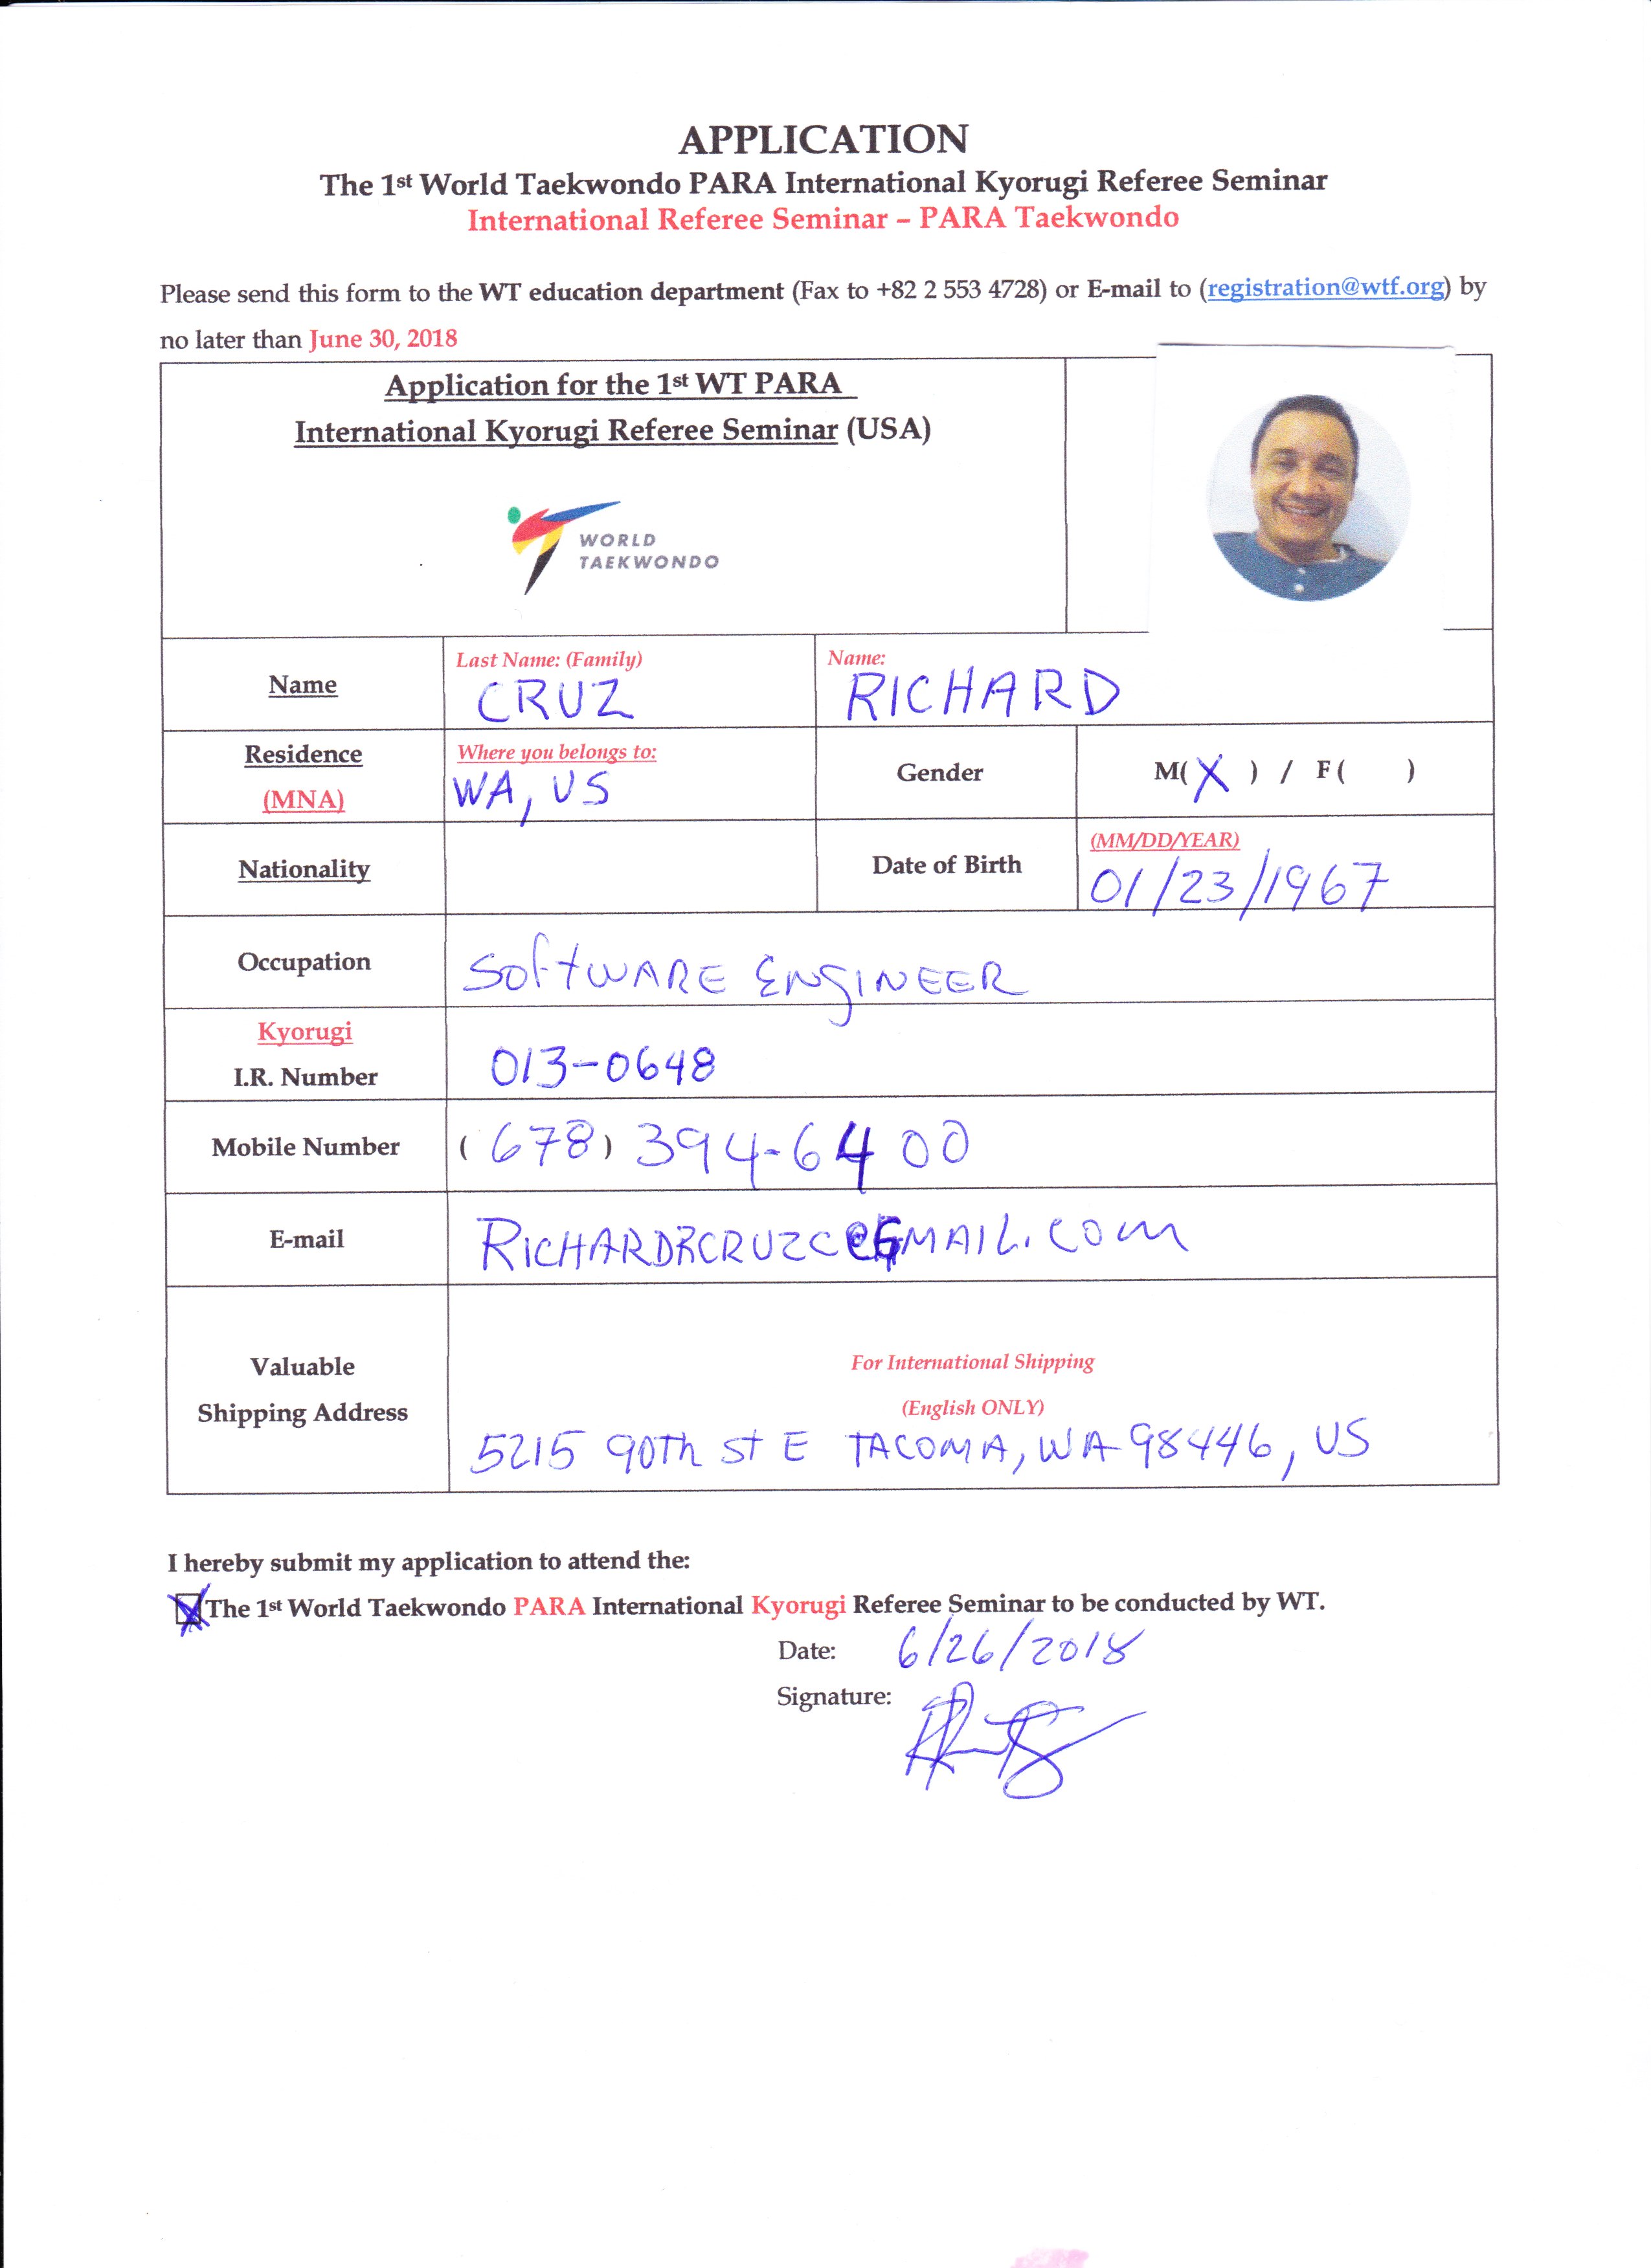 APPLICATION
The 1st World Taekwondo PARA International Kyorugi Referee Seminar
International Referee Seminar – PARA Taekwondo
Please send this form to the WT education department (Fax to +82 2 553 4728) or E-mail to (registration@wtf.org) by
no later than June 30, 2018
Application for the 1st WT PARA
International Kyorugi Referee Seminar (USA)
WORLD
TAEKWONDO
Name
Last Name: (Family)
CRUZ
Name:
RICHARD
Residence
(MNA)
Where you belongs to:
WA, US
Gender
M( X ) / F ( )
Nationality
Date of Birth
(MM/DD/YEAR)
01/23/1967
Occupation
SOftWARE ENgINEER
Kyorugi
I.R. Number
013-0648
Mobile Number
( 678 ) 394-6400
E-mail
Valuable
Shipping Address
For International Shipping
(English ONLY)
5215 90th st E TACOMA, WA 98446, US
I hereby submit my application to attend the:
The 1st World Taekwondo PARA International Kyorugi Referee Seminar to be conducted by WT.
Date: 6/26/2018
Signature: